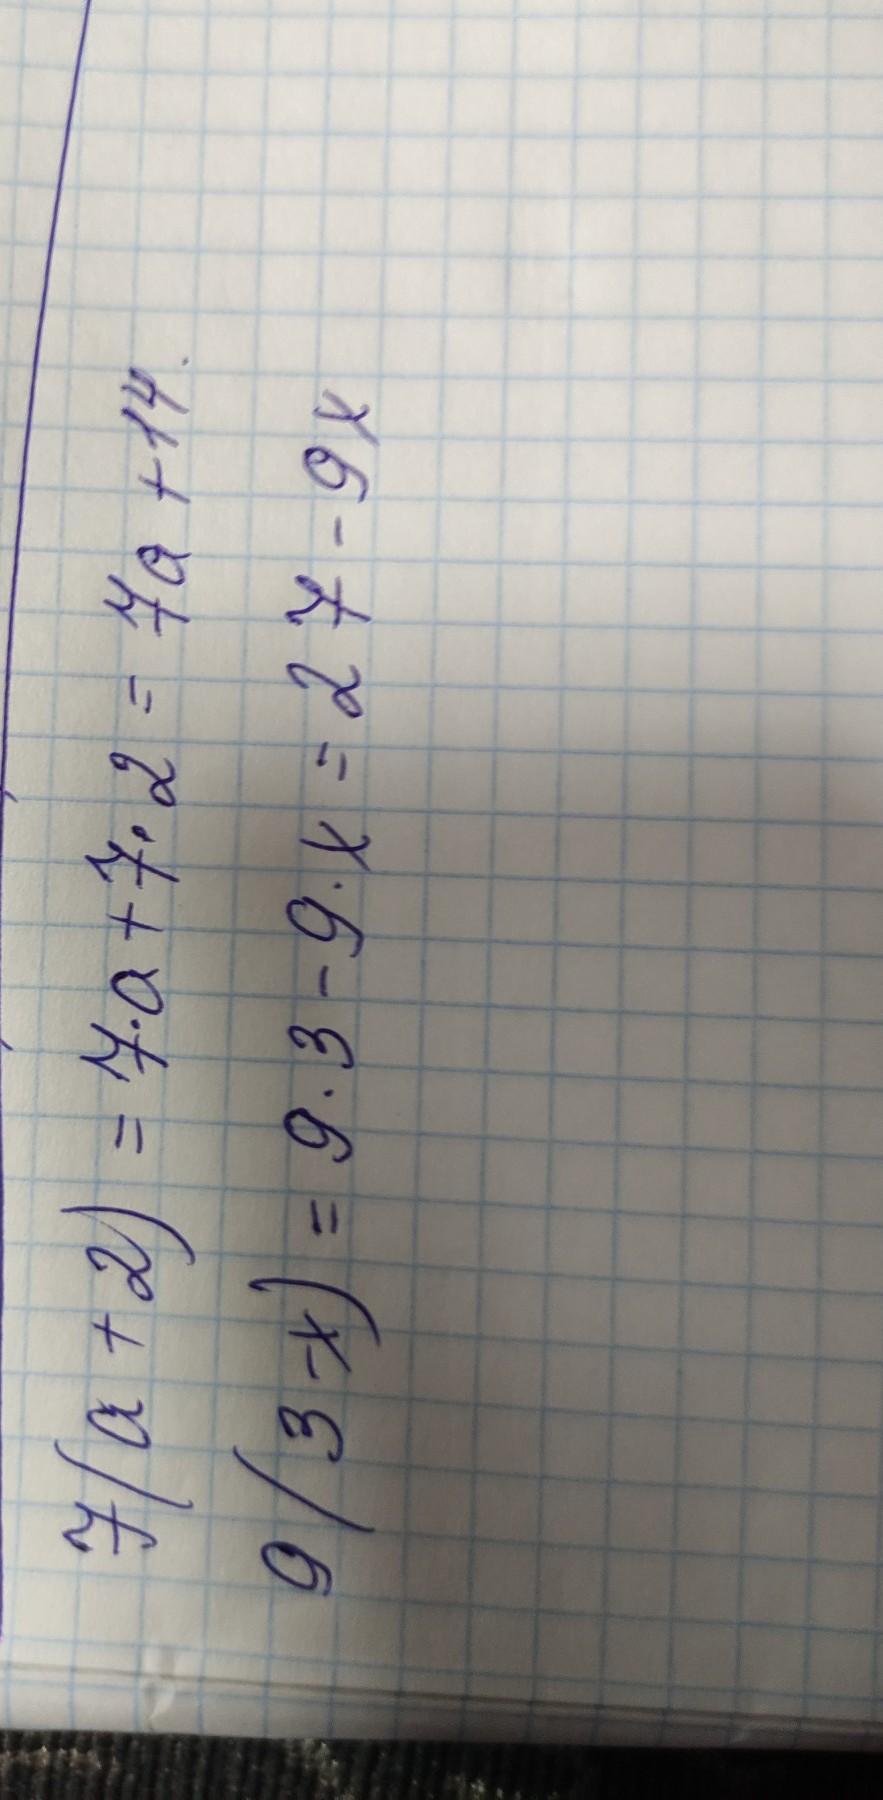 7(a+2) = 7·a+7·2 = 7a+14.
9(3-x) = 9·3-9·x = 27-9x